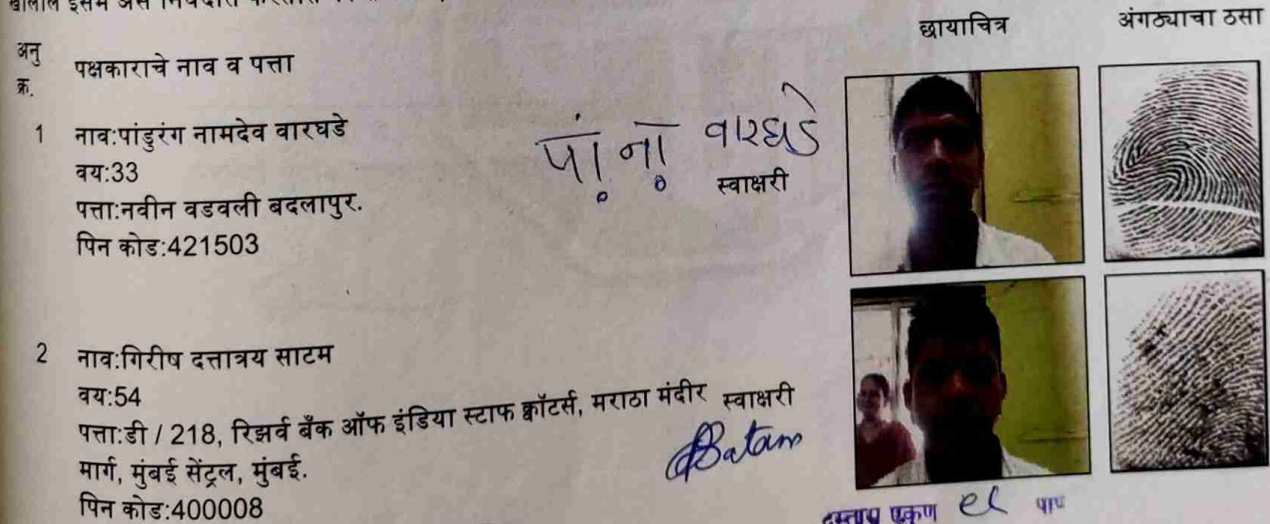 खालील इसम असे निवेदीत करतात
छायाचित्र
अंगठ्याचा ठसा
अनु क्र.
पक्षकाराचे नाव व पत्ता
1 नाव:पांडुरंग नामदेव वारघडे
वय:33
पत्ता:नवीन वडवली बदलापुर.
पिन कोड:421503
पां. ना. वारघडे
स्वाक्षरी
2 नाव:गिरीष दत्तात्रय साटम
वय:54
पत्ता:डी / 218, रिझर्व बँक ऑफ इंडिया स्टाफ क्वॉटर्स, मराठा मंदीर
मार्ग, मुंबई सेंट्रल, मुंबई.
पिन कोड:400008
स्वाक्षरी
Satam